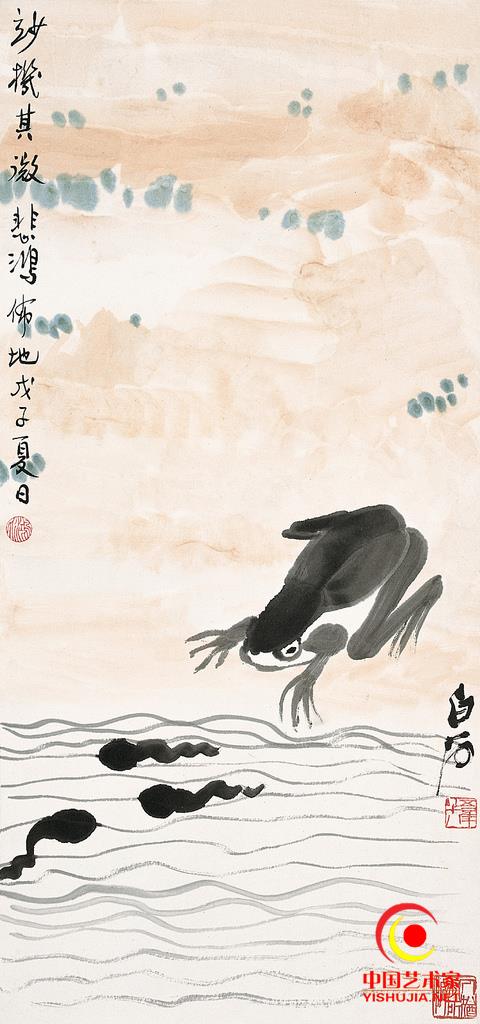 妙機其微 悲鴻佈地戊子夏日
白石
中国艺术家
YISHUJIA.NET